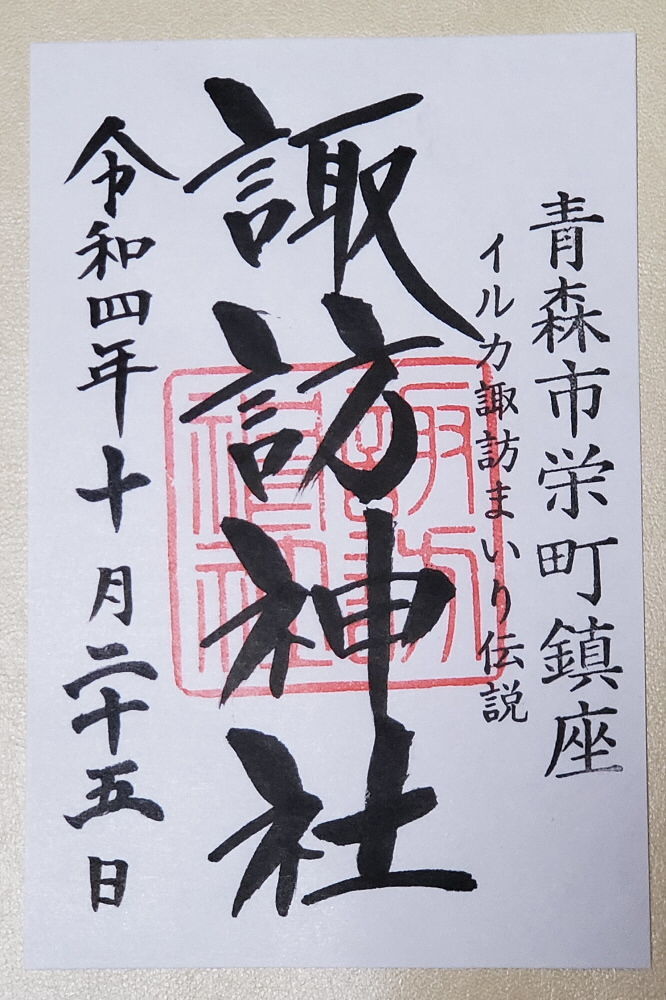 青森市栄町鎮座
イルカ諏訪まいり伝説
諏訪神社
令和四年十月二十五日
諏訪
神社